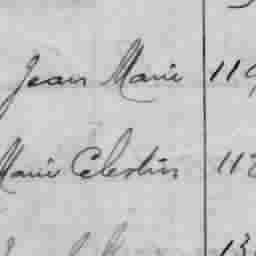 Jean Marie 119
Marie Celestin 118
13